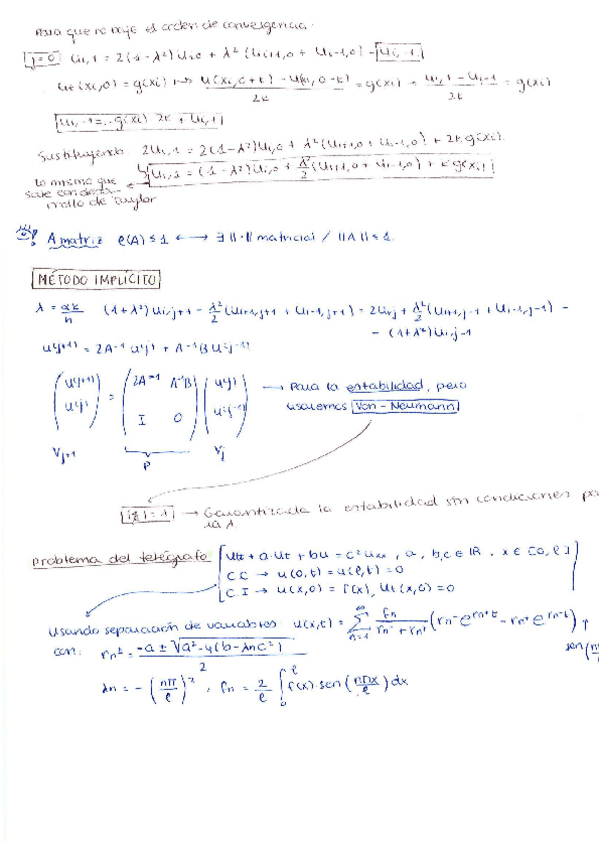 Para que no baje el orden de convergencia.
j=0 u_{i,1} = 2(1-λ²)u_{i,0} + λ²(u_{i+1,0} + u_{i-1,0}) - u_{i,-1}
u_t(x_i,0) = g(x_i) → (u(x_i,0+k) - u(x_i,0-k))/2k = g(x_i) → (u_{i,1} - u_{i,-1})/2k = g(x_i)
u_{i,-1} = -g(x_i) 2k + u_{i,1}
Sustituyendo 2u_{i,1} = 2(1-λ²)u_{i,0} + λ²(u_{i+1,0} + u_{i-1,0}) + 2k g(x_i)
u_{i,1} = (1-λ²)u_{i,0} + λ²/2 (u_{i+1,0} + u_{i-1,0}) + k g(x_i)
Lo mismo que
sale con
de Taylor
! A matriz ρ(A) ≤ 1 ←→ ∃ ||·|| matricial / ||A|| ≤ 1.
MÉTODO IMPLÍCITO
λ = αk/h (1+λ²)u_{i,j+1} - λ²/2 (u_{i+1,j+1} + u_{i-1,j+1}) = 2u_{i,j} + λ²/2 (u_{i+1,j-1} + u_{i-1,j-1}) -
- (1+λ²)u_{i,j-1}
u^{(j+1)} = 2A^{-1} u^{(j)} + A^{-1}B u^{(j-1)}
(u^{(j+1)} u^{(j)}) = (2A^{-1} A^{-1}B I 0) (u^{(j)} u^{(j-1)}) → Para la estabilidad, pero
usaremos Von-Neumann
V_{j+1} P V_j
|ξ| = 1 → Garantizada la estabilidad sin condiciones
λ.
Problema del telégrafo u_{tt} + a·u_t + bu = c²u_{xx}, a, b, c ∈ ℝ, x ∈ [0, ℓ]
CC → u(0,t) = u(ℓ,t) = 0
CI → u(x,0) = f(x), u_t(x,0) = 0
Usando separación de variables: u(x,t) = Σ_{n=1}^{∞} f_n/(r_n^- - r_n^+) (r_n^- e^{r_n^+ t} - r_n^+ e^{r_n^- t})
sen(
con: r_n^± = (-a ± √(a²-4(b-λ_n c²)))/2
λ_n = -(nπ/ℓ)², f_n = 2/ℓ ∫_0^ℓ f(x)·sen(nπx/ℓ) dx